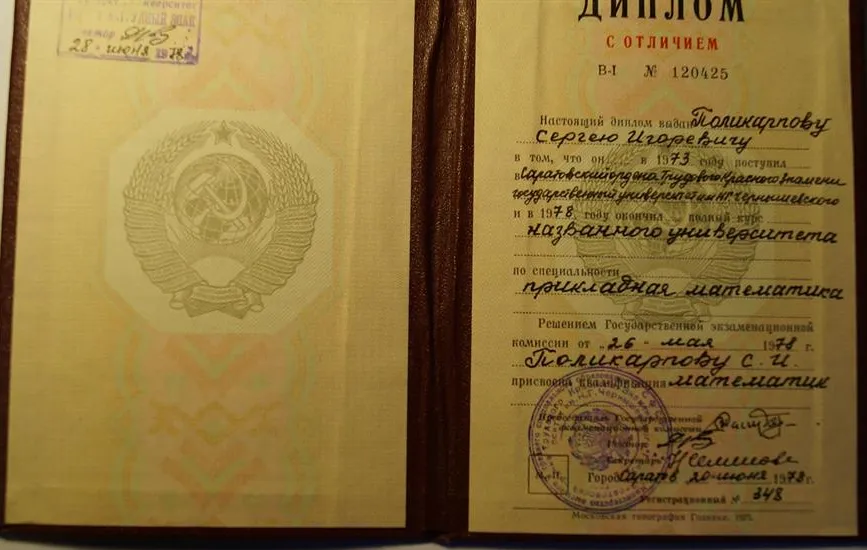 28 июня 1978
ДИПЛОМ
С ОТЛИЧИЕМ
В-I № 120425
Настоящий диплом выдан Поликарпову
Сергею Игоревичу
в том, что он в 1973 году поступил
в Саратовский ордена Трудового Красного Знамени
государственный университет им. Н.Г. Чернышевского
и в 1978 году окончил полный курс
названного университета
по специальности
прикладная математика
Решением Государственной экзаменационной
комиссии от „26 - мая 1978 г.
Поликарпову С. И.
присвоена квалификация математик
Председатель Государственной
экзаменационной комиссии
Ректор
Секретарь
М.П. Город Саратов 20 июня 1978 г.
Регистрационный № 348
Московская типография Гознака.